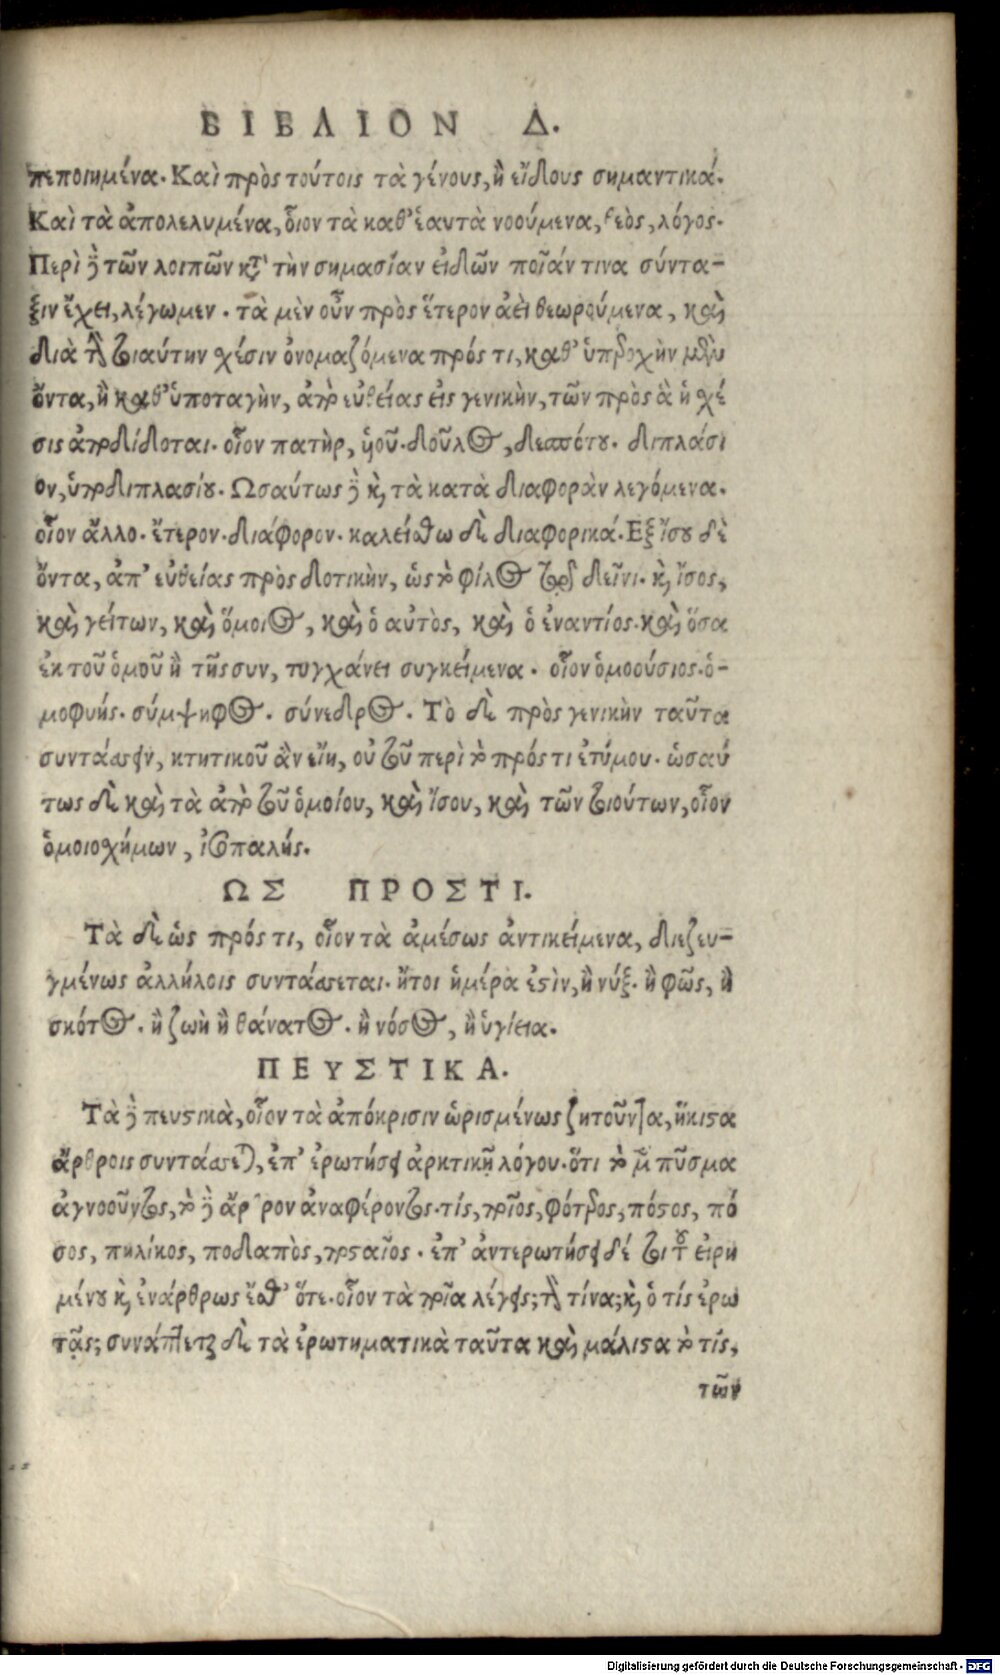 ΒΙΒΛΙΟΝ Δ.
πεποιημένα. Καὶ πρὸς τούτοις τὰ γένους, ἢ εἴδους σημαντικά.
Καὶ τὰ ἀπολελυμένα, οἷον τὰ καθ' ἑαυτὰ νοούμενα, θεὸς, λόγος.
Περὶ δὲ τῶν λοιπῶν κτ τὴν σημασίαν εἰδῶν ποῖάν τινα σύντα-
ξιν ἔχει, λέγωμεν. τὰ μὲν οὖν πρὸς ἕτερον ἀεὶ θεωρούμενα, καὶ
διὰ τὴν τοιαύτην χέσιν ὀνομαζόμενα πρός τι, καθ' ὑπεροχὴν μὲν
ὄντα, ἢ καθ' ὑποταγὴν, ἀπὸ εὐθείας εἰς γενικὴν, τῶν πρὸς ἃ ἡ χέ
σις ἀποδίδοται. οἷον πατὴρ, ὑοῦ. δοῦλος, δεσπότου. διπλάσι
ον, ὑποδιπλασίου. Ωσαύτως δὲ κὶ τὰ κατὰ διαφορὰν λεγόμενα.
οἷον ἄλλο. ἕτερον. διάφορον. καλείσθω δὲ διαφορικά. Εξ ἴσου δὲ
ὄντα, ἀπ' εὐθείας πρὸς δοτικὴν, ὡς τὸ φίλος τῷδε δεῖνι. κὶ ἴσος,
καὶ γείτων, καὶ ὅμοιος, καὶ ὁ αὐτὸς, καὶ ὁ ἐναντίος. καὶ ὅσα
ἐκ τοῦ ὁμοῦ ἢ τῆς συν, τυγχάνει συγκείμενα. οἷον ὁμοούσιος. ὁ-
μοφυής. σύμψηφος. σύνεδρος. Τὸ δὲ πρὸς γενικὴν ταῦτα
συντάσσειν, κτητικοῦ ἂν εἴη, οὐ τοῦ περὶ τὸ πρός τι ἐτύμου. ὡσαύ
τως δὲ καὶ τὰ ἀπὸ τοῦ ὁμοίου, καὶ ἴσου, καὶ τῶν τοιούτων, οἷον
ὁμοιοχήμων, ἰσοπαλής.
ΩΣ ΠΡΟΣΤΙ.
Τὰ δὲ ὡς πρός τι, οἷον τὰ ἀμέσως ἀντικείμενα, διεζευ-
γμένως ἀλλήλοις συντάσσεται. ἤτοι ἡμέρα ἐστὶν, ἢ νύξ. ἢ φῶς, ἢ
σκότος. ἢ ζωὴ ἢ θάνατος. ἢ νόσος, ἢ ὑγίεια.
ΠΕΥΣΤΙΚΑ.
Τὰ δὲ πευστικὰ, οἷον τὰ ἀπόκρισιν ὡρισμένως ζητοῦντα, ἥκιστα
ἄρθροις συντάσσεται, ἐπ' ἐρωτήσει ἀρκτικῇ λόγου. ὅτι τὸ μὲν πῦσμα
ἀγνοοῦντος, τὸ δὲ ἄρθρον ἀναφέροντος. τίς, ποῖος, πότερος, πόστος, πό
σος, πηλίκος, ποδαπὸς, ποσταῖος. ἐπ' ἀντερωτήσει δέ τοι τοῦ εἰρη
μένου κὶ ἐνάρθρως ἔσθ' ὅτε. οἷον τὰ ποῖα λέγεις; τὴν τίνα; κὶ ὁ τίς ἐρω
τᾷς; συνάπτεται δὲ τὰ ἐρωτηματικὰ ταῦτα καὶ μάλιστα τὸ τίς,
τῶν
Digitalisierung gefördert durch die Deutsche Forschungsgemeinschaft - DFG